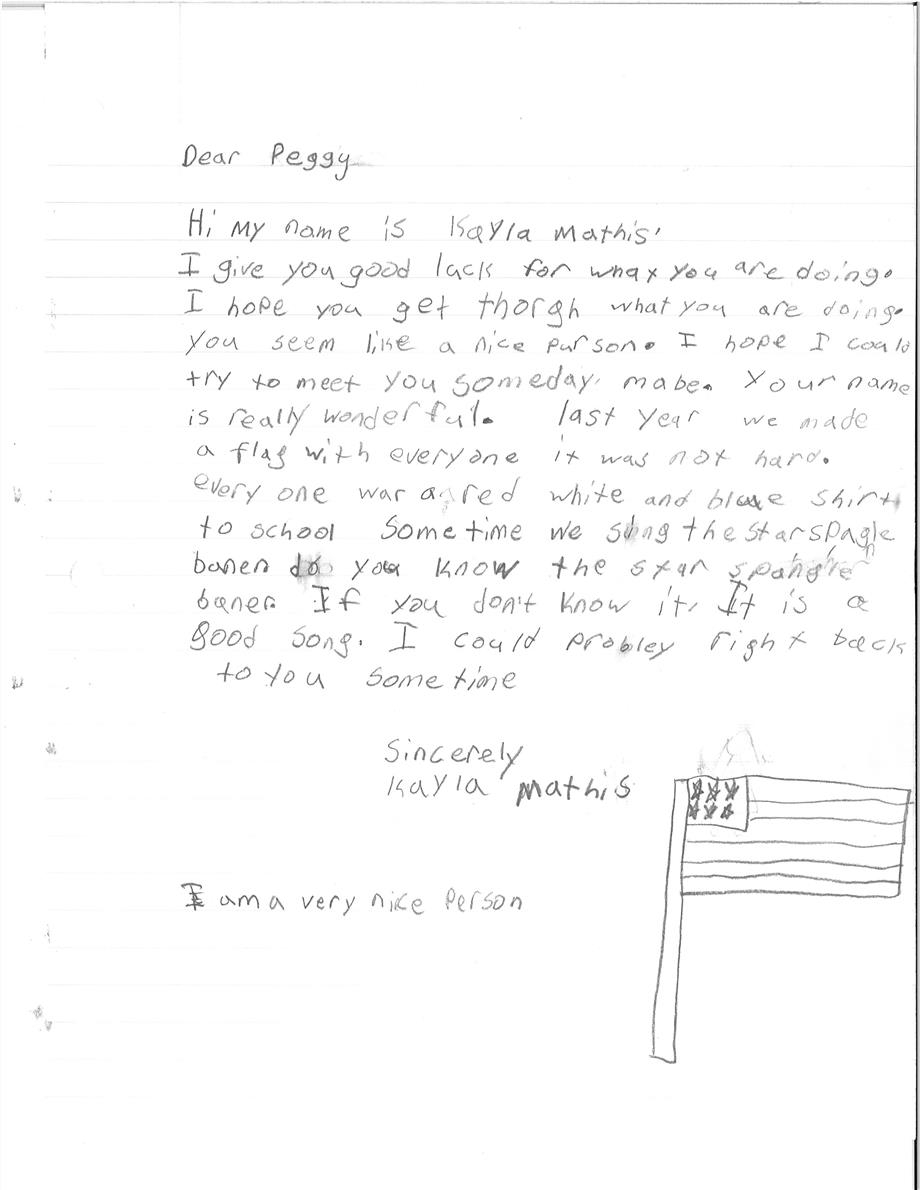 Dear Peggy
Hi my name is Kayla Mathis.
I give you good lack for what you are doing.
I hope you get thorgh what you are doing.
you seem like a nice purson. I hope I could
try to meet you someday. mabe. Your name
is really wonderful. last year we made
a flag with everyone it was not hard.
every one war a red white and blue shirt
to school Sometime we sing the star spagle
baner do you know the star spangle
baner. If you don't know it. It is a
good song. I could probley right back
to you sometime
Sincerely
Kayla Mathis
I am a very nice person